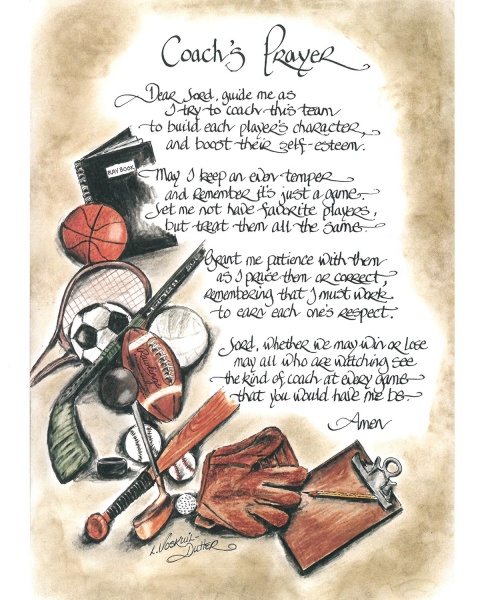 Coach's Prayer
Dear Lord, guide me as
I try to coach this team
to build each player's character,
and boost their self-esteem.
May I keep an even temper
and remember it's just a game.
Let me not have favorite players,
but treat them all the same.
Grant me patience with them
as I praise them or correct,
remembering that I must work
to earn each one's respect.
Lord, whether we may win or lose
may all who are watching see
the kind of coach at every game
that you would have me be
Amen
PLAY BOOK
L. Voskuil-
Dutter